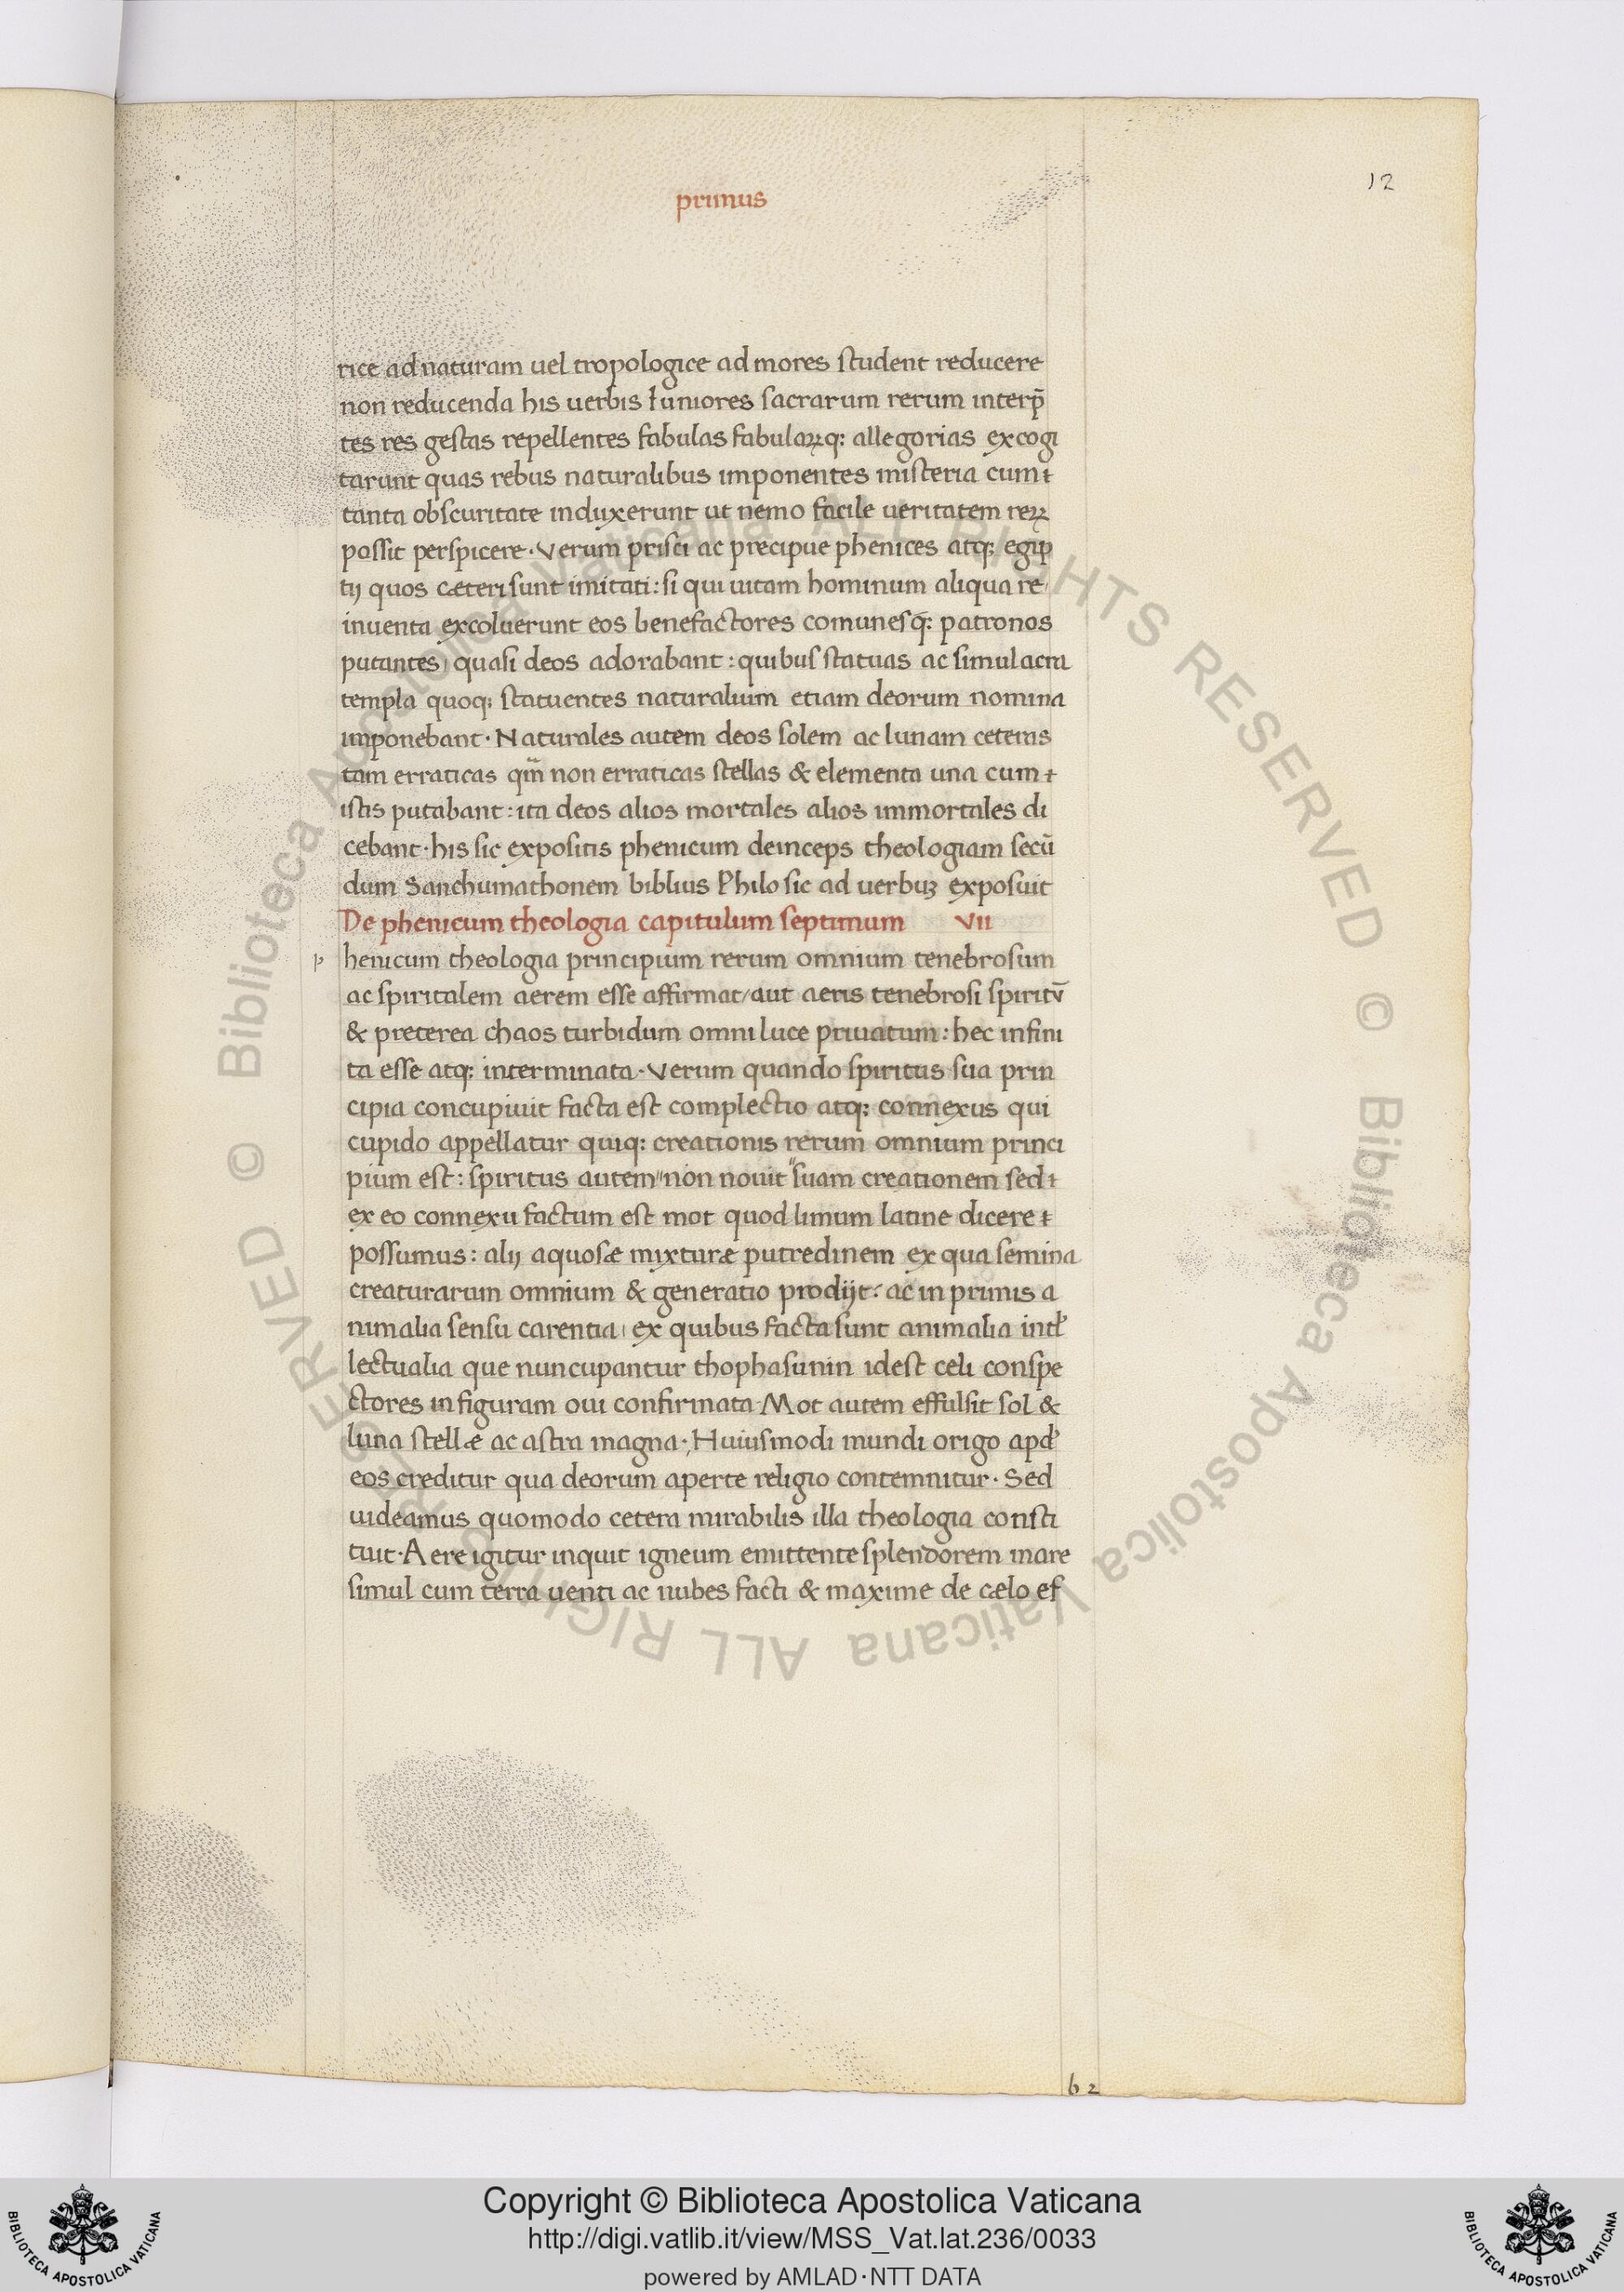 12
primus
rice ad naturam uel tropologice ad mores student reducere
non reducenda his uerbis Iuniores sacrarum rerum interp̄
tes res gestas repellentes fabulas fabulaꝝq; allegorias excogi
tarunt quas rebus naturalibus imponentes misteria cum
tanta obscuritate induxerunt ut nemo facile ueritatem reꝝ
possit perspicere · Verum prisci ac precipue phenices atq; egip
tij quos cæteri sunt imitati : si qui uitam hominum aliqua re
inuenta excoluerunt eos benefactores comunesq; patronos
putantes / quasi deos adorabant : quibus statuas ac simulacra
templa quoq; statuentes naturalium etiam deorum nomina
imponebant · Naturales autem deos solem ac lunam ceteras
tam erraticas qm̄ non erraticas stellas & elementa una cum
istis putabant : ita deos alios mortales alios immortales di
cebant · his sic expositis phenicum deinceps theologiam secū
dum Sanchumathonem biblius Philo sic ad uerbuꝫ exposuit
De phenicum theologia capitulum septimum VII
p henicum theologia principium rerum omnium tenebrosum
ac spiritalem aerem esse affirmat / aut aeris tenebrosi spiritū
& preterea chaos turbidum omni luce priuatum : hec infini
ta esse atq; interminata · Verum quando spiritus sua prin
cipia concupiuit facta est complectio atq; connexus qui
cupido appellatur quiq; creationis rerum omnium princi
pium est : spiritus autem " non nouit " suam creationem sed
ex eo connexu factum est mot quod limum latine dicere
possumus : alij aquosæ mixturæ putredinem ex qua semina
creaturarum omnium & generatio prodijt : ac in primis a
nimalia sensu carentia / ex quibus facta sunt animalia intł
lectualia que nuncupantur thophasunin idest celi conspe
ctores in figuram oui confirmata · Mot autem effulsit sol &
luna stellæ ac astra magna · Huiusmodi mundi origo apd'
eos creditur qua deorum aperte religio contemnitur · Sed
uideamus quomodo cetera mirabilis illa theologia consti
tuit · Aere igitur inquit igneum emittente splendorem mare
simul cum terra uenti ac nubes facti & maxime de cælo ef
b 2
© Biblioteca Apostolica Vaticana ALL RIGHTS RESERVED © Biblioteca Apostolica Vaticana ALL RIGHTS RESERVED
Copyright © Biblioteca Apostolica Vaticana
http://digi.vatlib.it/view/MSS_Vat.lat.236/0033
powered by AMLAD·NTT DATA
BIBLIOTECA APOSTOLICA VATICANA
BIBLIOTECA APOSTOLICA VATICANA